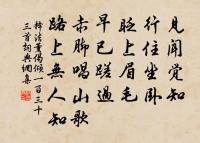 見聞覺知
行住坐臥
眨上眉毛
早已蹉過
赤脚唱山歌
路上無人知
釋法薰偈傾一百三十
三首詞典網集